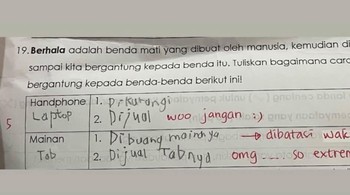 19. Berhala adalah benda mati yang dibuat oleh manusia, kemudian di
sampai kita bergantung kepada benda itu. Tuliskan bagaimana cara
bergantung kepada benda-benda berikut ini!
Handphone 1. Dikurangi
Laptop 2. Dijual woo jangan :)
5
Mainan 1. Dibuang mainnya → dibatasi wak
Tab 2. Dijual Tabnya omg ..... so extrem